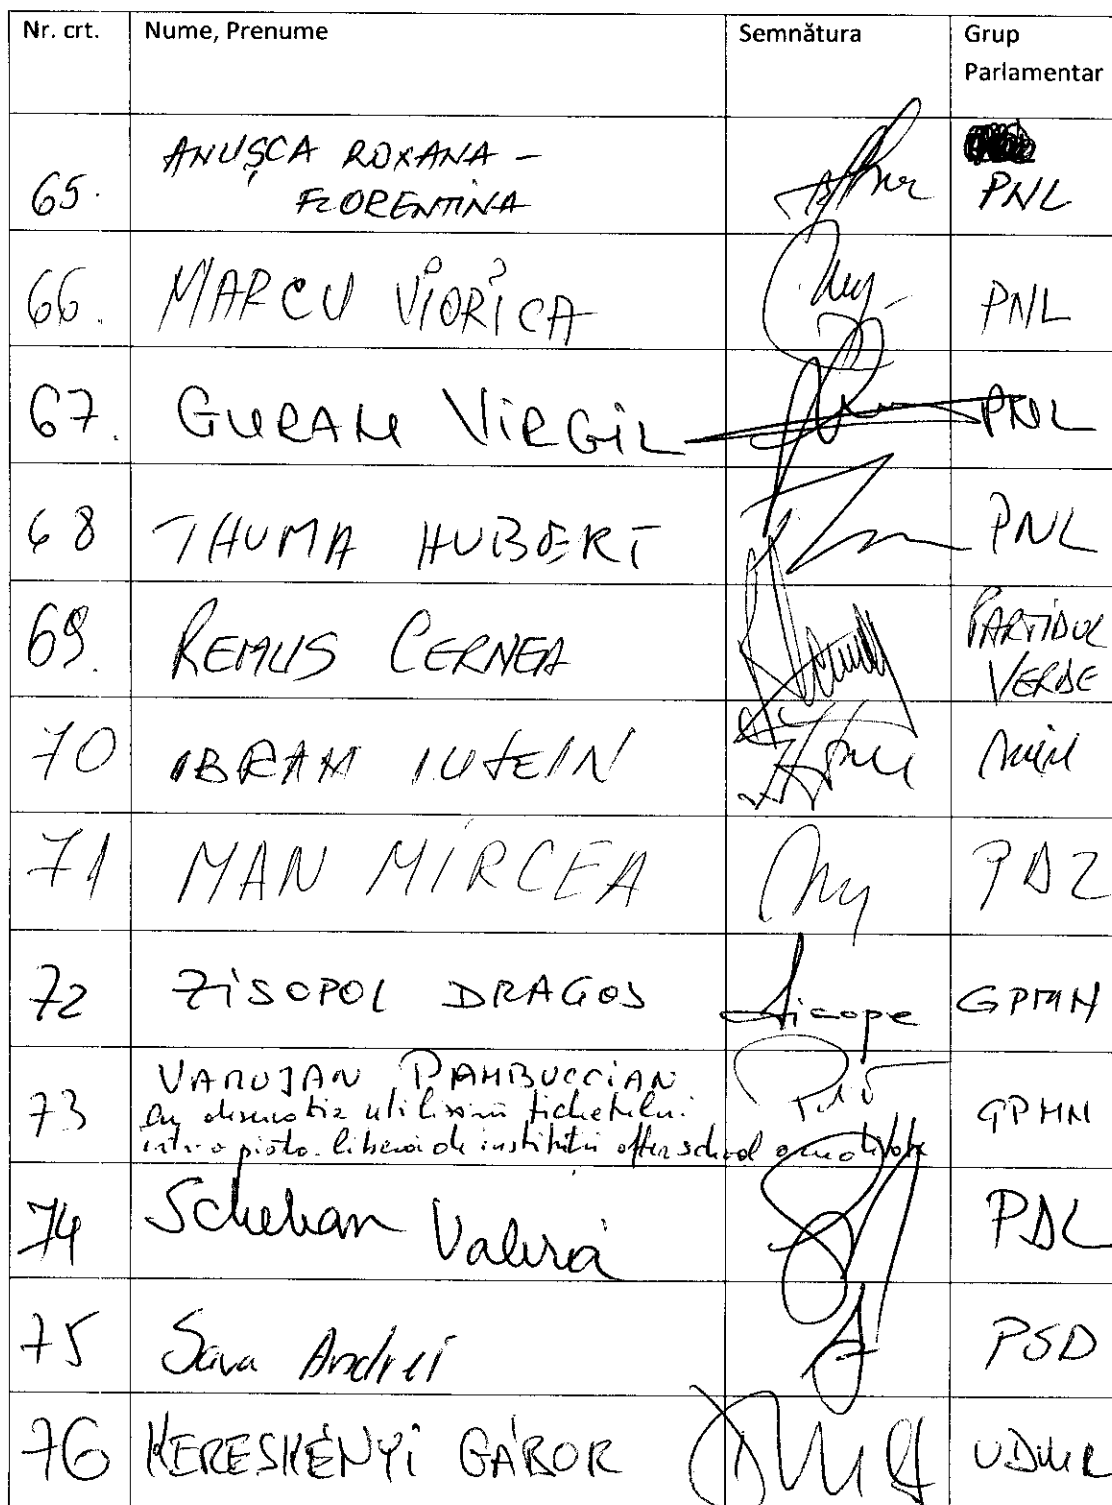 Nr. crt. Nume, Prenume Semnătura Grup
Parlamentar
65. ANUȘCA ROXANA - FLORENTINA PNL
66. MARCU VIORICA PNL
67. GURAN VIRGIL PNL
68 THUMA HUBERT PNL
69. REMUS CERNEA PARTIDUL VERDE
70 IBRAM IUSEIN
71 MAN MIRCEA PDL
72 ZISOPOL DRAGOS GPMN
73 VARUJAN PAMBUCCIAN GPMN
utilizării tichetului
într-o piață liberă de instituții after school
74 Scheban Valeria PDL
75 Sava Andrei PSD
76 KERESKÉNYI GÁBOR UDMR